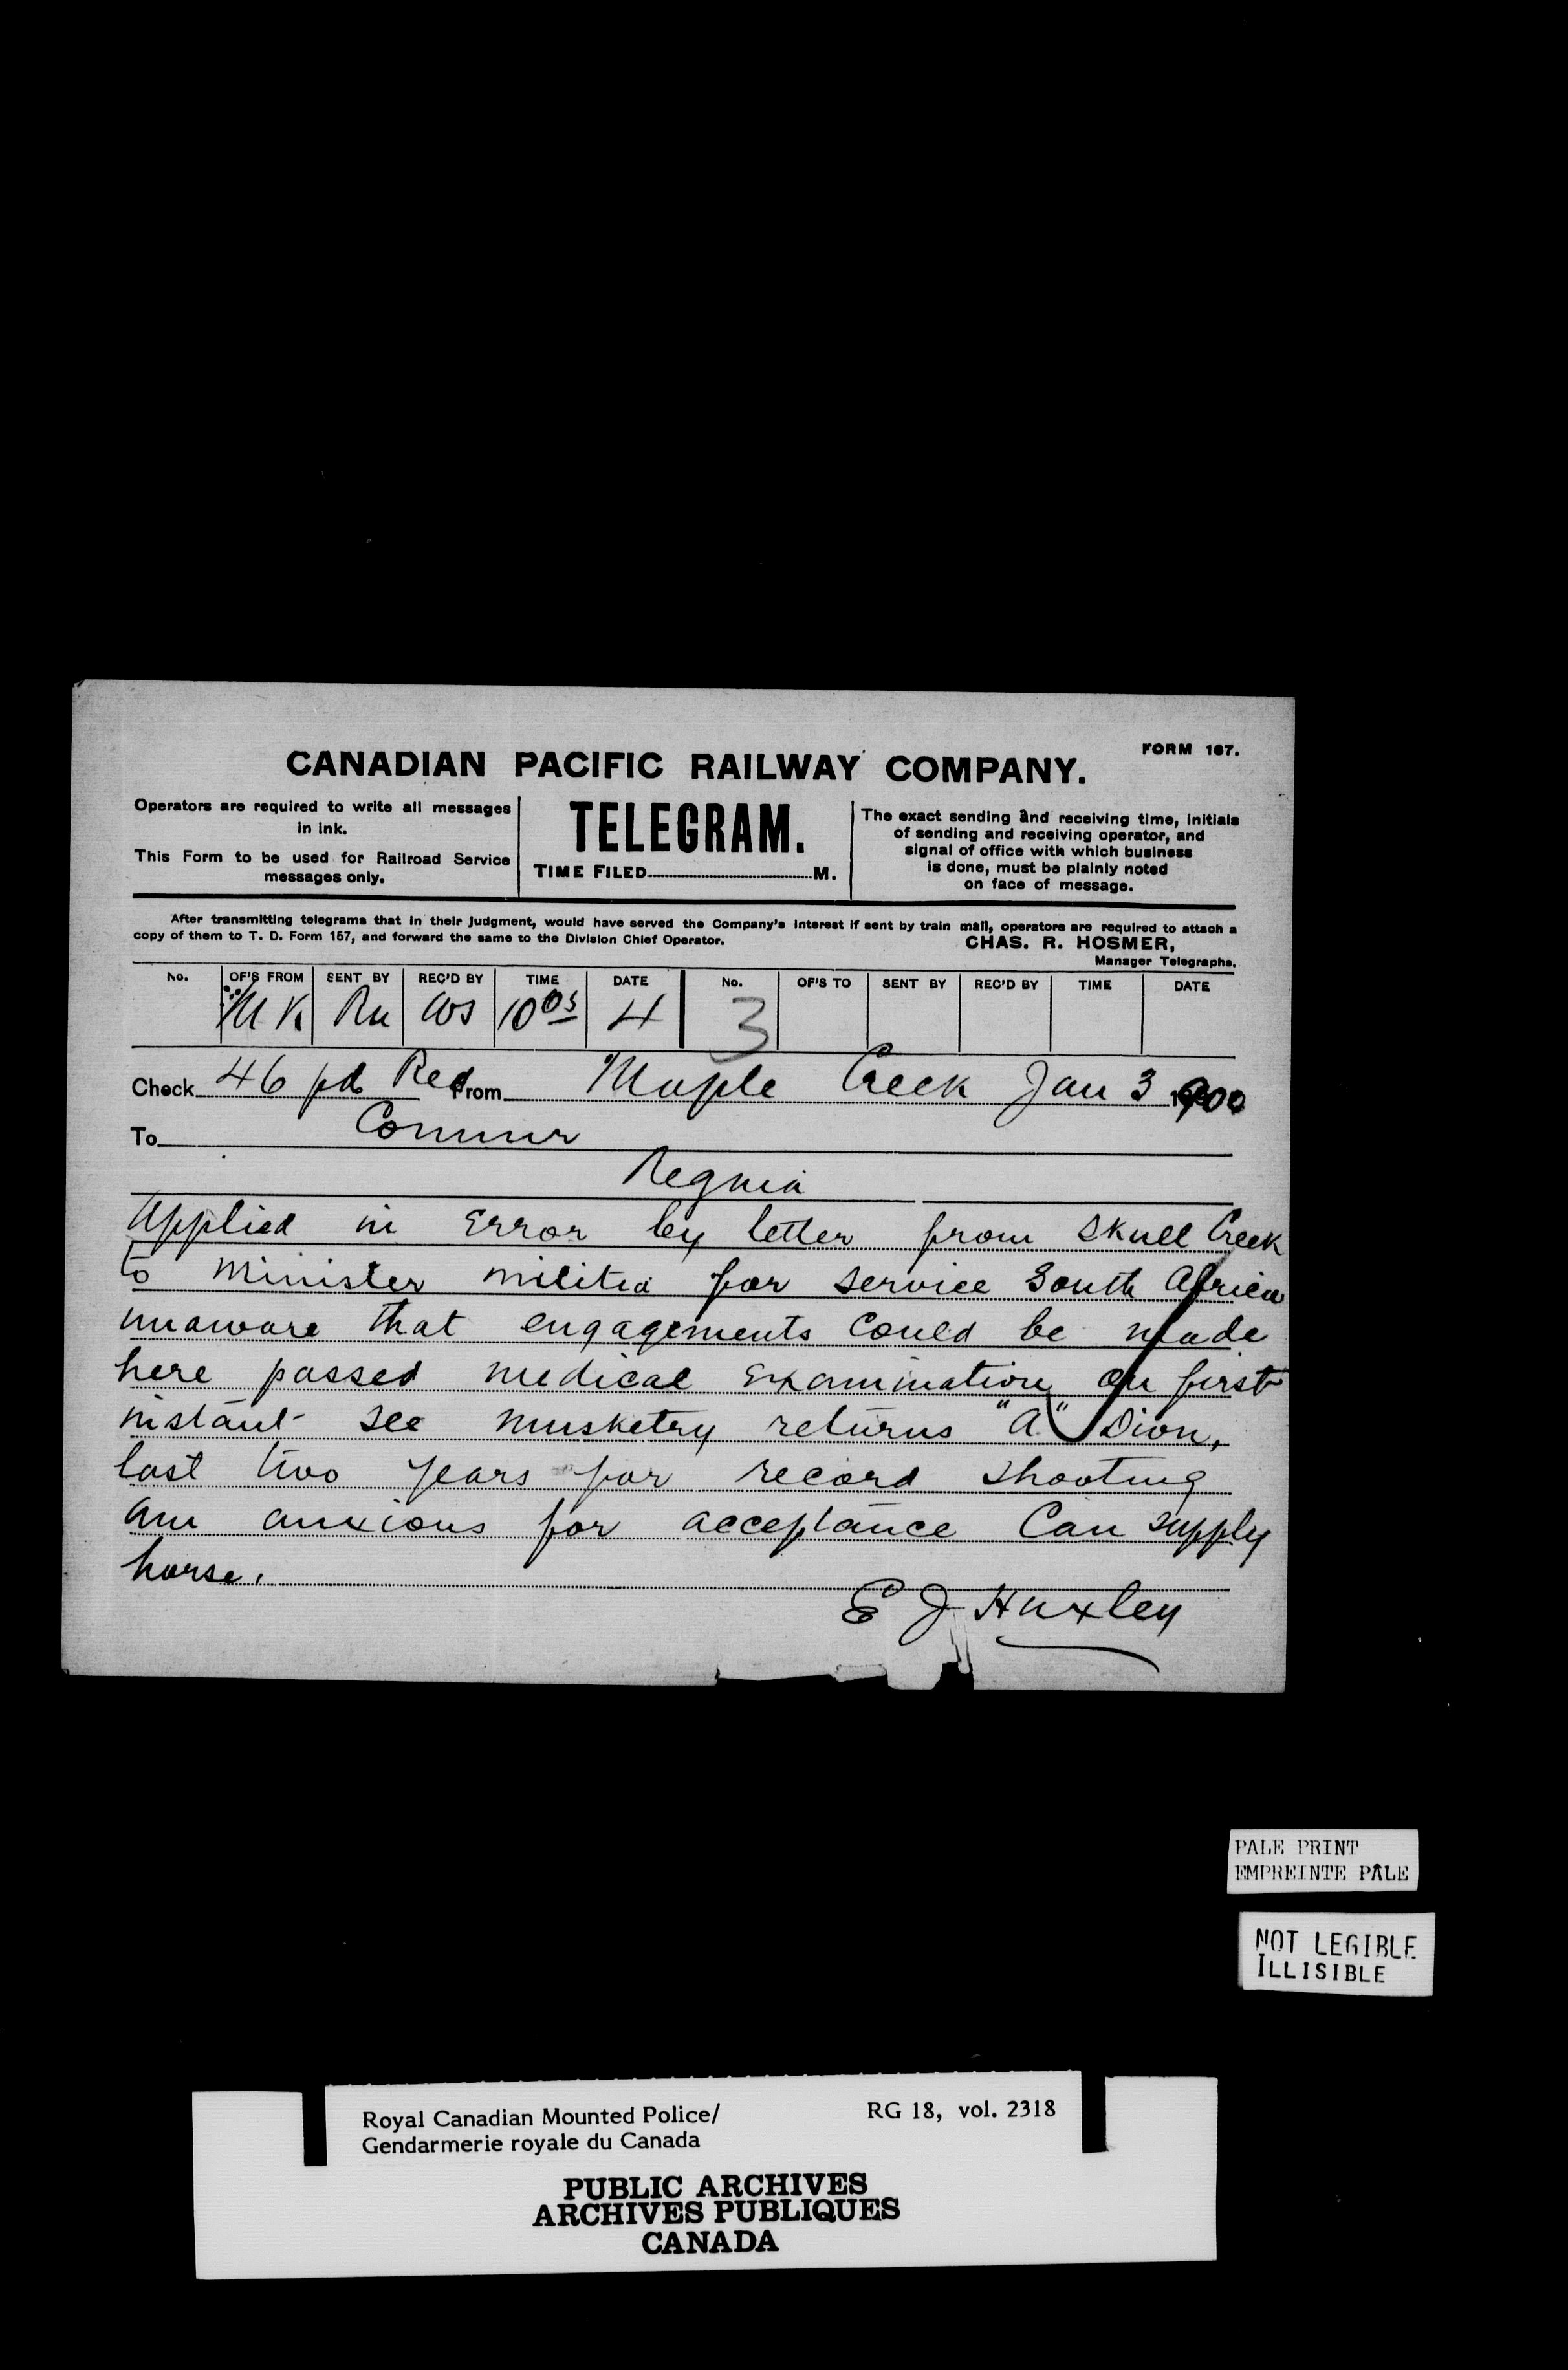 FORM 167.
CANADIAN PACIFIC RAILWAY COMPANY.
Operators are required to write all messages
in ink.
This Form to be used for Railroad Service
messages only.
TELEGRAM.
TIME FILED M.
The exact sending and receiving time, initials
of sending and receiving operator, and
signal of office with which business
is done, must be plainly noted
on face of message.
After transmitting telegrams that in their judgment, would have served the Company's interest if sent by train mail, operators are required to attach a
copy of them to T. D. Form 157, and forward the same to the Division Chief Operator.
CHAS. R. HOSMER,
Manager Telegraphs.
No. OF'S FROM SENT BY REC'D BY TIME DATE No. OF'S TO SENT BY REC'D BY TIME DATE
MK Ru 10 05 4 3
Check 46 pd Red From Maple Creek Jan 3 1900
To Commr
Regina
Applied in Error by letter from Skull Creek
to Minister militia for service South Africa
unaware that engagements could be made
here passed medical Examination on first
instant see musketry returns "A" Dion,
last two years for record shooting
am anxious for acceptance Can supply
horse.
E J Huxley
PALE PRINT
EMPREINTE PÂLE
NOT LEGIBLE
ILLISIBLE
Royal Canadian Mounted Police/
Gendarmerie royale du Canada
RG 18, vol. 2318
PUBLIC ARCHIVES
ARCHIVES PUBLIQUES
CANADA